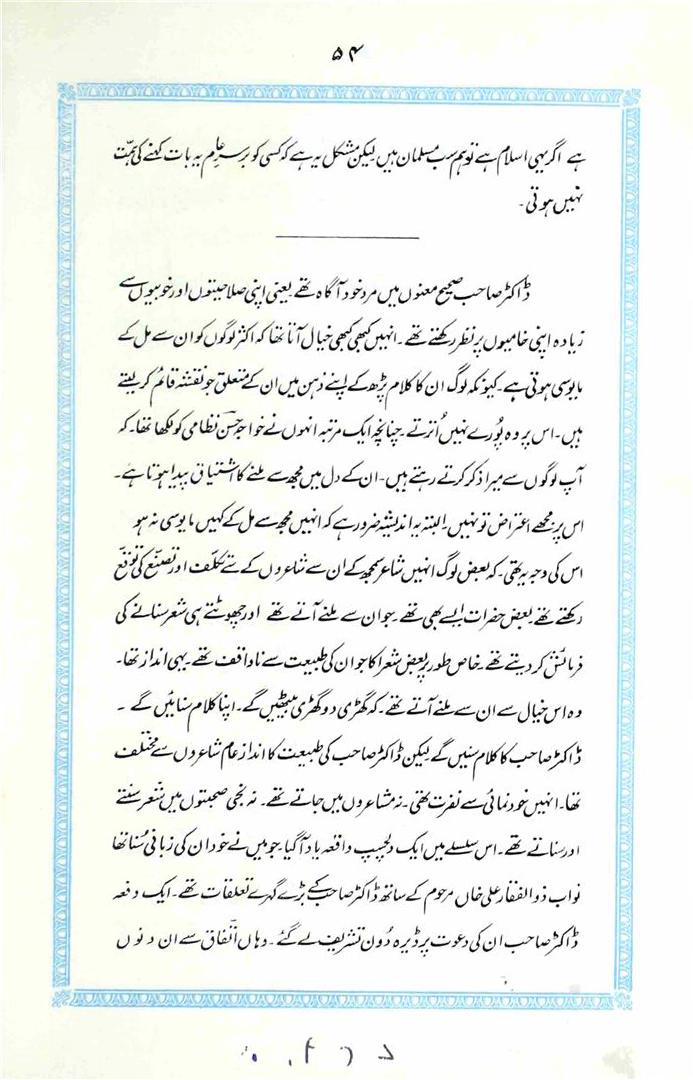 ۵۴
ہے اگر یہی اسلام ہے تو ہم سب مسلمان ہیں لیکن مشکل یہ ہے کہ کسی کو برسرِ عام یہ بات کہنے کی ہمّت
نہیں ہوتی۔
ڈاکٹر صاحب صحیح معنوں میں مردِ خود آگاہ تھے یعنی اپنی صلاحیتوں اور خوبیوں سے
زیادہ اپنی خامیوں پر نظر رکھتے تھے۔ انہیں کبھی کبھی خیال آتا تھا کہ اکثر لوگوں کو ان سے مل کے
مایوسی ہوتی ہے۔ کیونکہ لوگ ان کا کلام پڑھ کے اپنے ذہن میں ان کے متعلق جو نقشہ قائم کر لیتے
ہیں۔ اس پر وہ پُورے نہیں اُترتے۔ چنانچہ ایک مرتبہ انہوں نے خواجہ حسن نظامی کو لکھا تھا۔ کہ
آپ لوگوں سے میرا ذکر کرتے رہتے ہیں۔ ان کے دل میں مجھ سے ملنے کا اشتیاق پیدا ہوتا ہے۔
اس پر مجھے اعتراض تو نہیں۔ البتہ یہ اندیشہ ضرور ہے کہ انہیں مجھ سے مل کے کہیں مایوسی نہ ہو
اس کی وجہ یہ تھی۔ کہ بعض لوگ انہیں شاعر سمجھ کے ان سے شاعروں کے سے تکلّف اور تصنّع کی توقع
رکھتے تھے۔ بعض حضرات ایسے بھی تھے۔ جو ان سے ملنے آتے تھے اور چھوٹتے ہی شعر سنانے کی
فرمائش کر دیتے تھے۔ خاص طور پر بعض شعرا کا جو ان کی طبیعت سے ناواقف تھے۔ یہی انداز تھا۔
وہ اس خیال سے ان سے ملنے آتے تھے۔ کہ گھڑی دو گھڑی بیٹھیں گے۔ اپنا کلام سنائیں گے۔
ڈاکٹر صاحب کا کلام سنیں گے لیکن ڈاکٹر صاحب کی طبیعت کا انداز عام شاعروں سے مختلف
تھا۔ انہیں خود نمائی سے نفرت تھی۔ نہ مشاعروں میں جاتے تھے۔ نہ نجی صحبتوں میں شعر سنتے
اور سناتے تھے۔ اس سلسلے میں ایک دلچسپ واقعہ یاد آ گیا۔ جو میں نے خود ان کی زبانی سُنا تھا
نواب ذوالفقار علی خاں مرحوم کے ساتھ ڈاکٹر صاحب کے بڑے گہرے تعلقات تھے۔ ایک دفعہ
ڈاکٹر صاحب ان کی دعوت پر ڈیرہ دُون تشریف لے گئے۔ وہاں اتّفاق سے ان دنوں